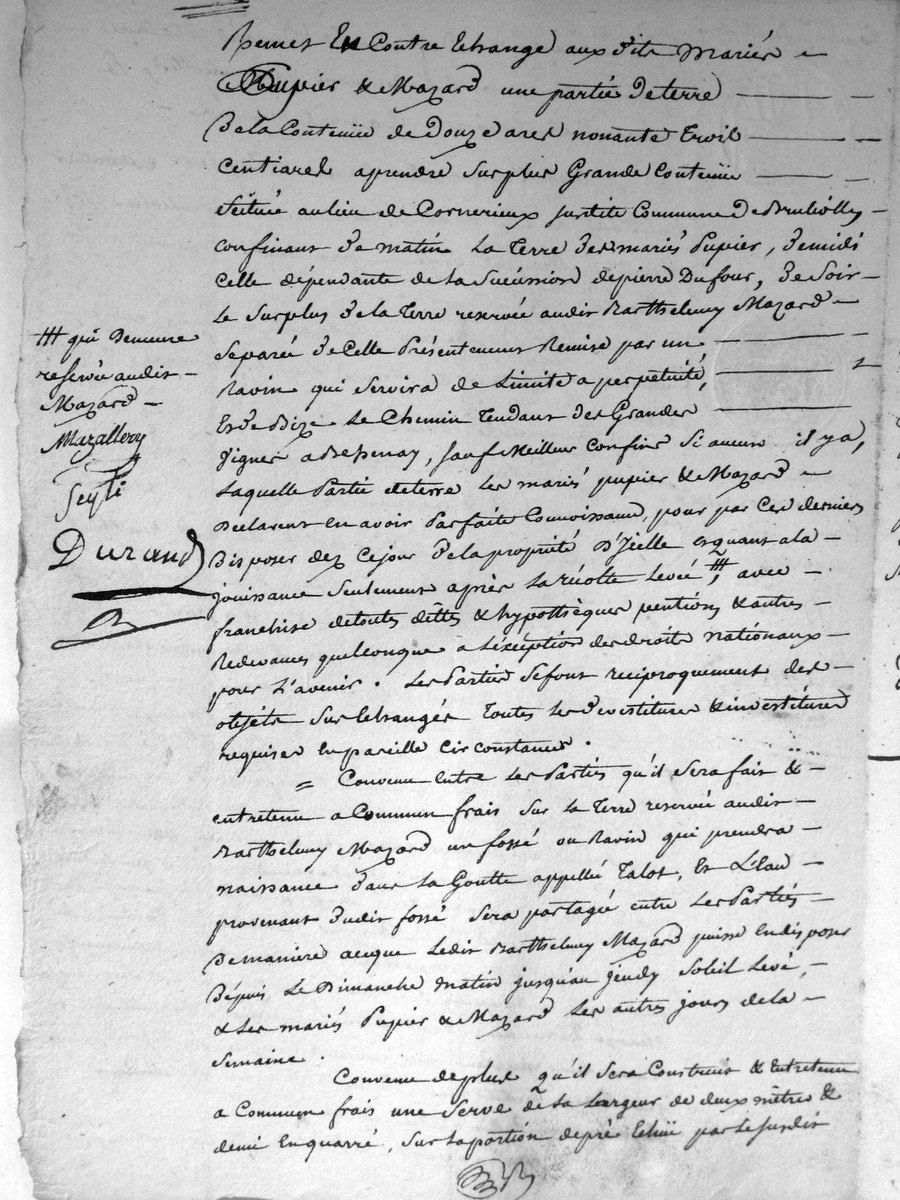 Remet En Contre Echange aux dits Mariés
Pupier & Mazard une partie de terre
De la Contenüe de Douze ares nonante trois
Centiares a prendre Sur plus Grande Contenüe
Scitué au lieu de Cornerieux susdite Commune De
confinant De matin La Terre Des mariés Pupier, De midi
Celle dépendante de la Succession de pierre Dufour, De Soir
Le Surplus De la Terre reservée audit Barthelemy Mazard
Separée De Celle Présentement Remise par un
Ravin qui Servira de Limite a perpetuité,
Et De Bize Le Chemin Tendant des Grandes
Vignes a , Sauf Meilleurs Confins Si aucuns il y a,
Laquelle Partie de terre Les mariés pupier & Mazard
Declarent En avoir Parfaite Connoissance, pour par Ces derniers
Disposer dez Ce jour De la propriété D'Icelle Et quant a la
jouissance Seulement après La récolte Levée ⧻, avec
franchise de toutes dêttes & hypothèques pentions & autres
Redevances quelconque a L'éxception des droits nationaux
pour L'avenir. Les Parties Se font reciproquement des
objets Sur Echangés Toutes Les Devestitures & investitures
requises En pareille Circonstances.
= Convenu Entre Les Parties qu'il Sera fait &
entretenu a Commun frais Sur La Terre reservée audit
Barthelemy Mazard un fossé ou Ravin qui prendra
naissance Dans La Goutte appellée Talot, Et L'Eau
provenant Dudit fossé Sera partagée entre Les Parties
De manière aceque Ledit Barthelemy Mazard puisse En disposer
Dépuis Le Dimanche Matin jusqu'au jeudy Soleil Levé,
& Les mariés Pupier & Mazard Les autres jours de la
Semaine.
Convenu de plus qu'il Sera Construit & Entretenu
a Commun frais une Serve de la Largeur de deux mêtres &
demi En quarré, Sur La portion de pré Echüe par Le Susdit
⧻ qui Demeure
reservée audit
Mazard
Mazallery
Seyti
Durand